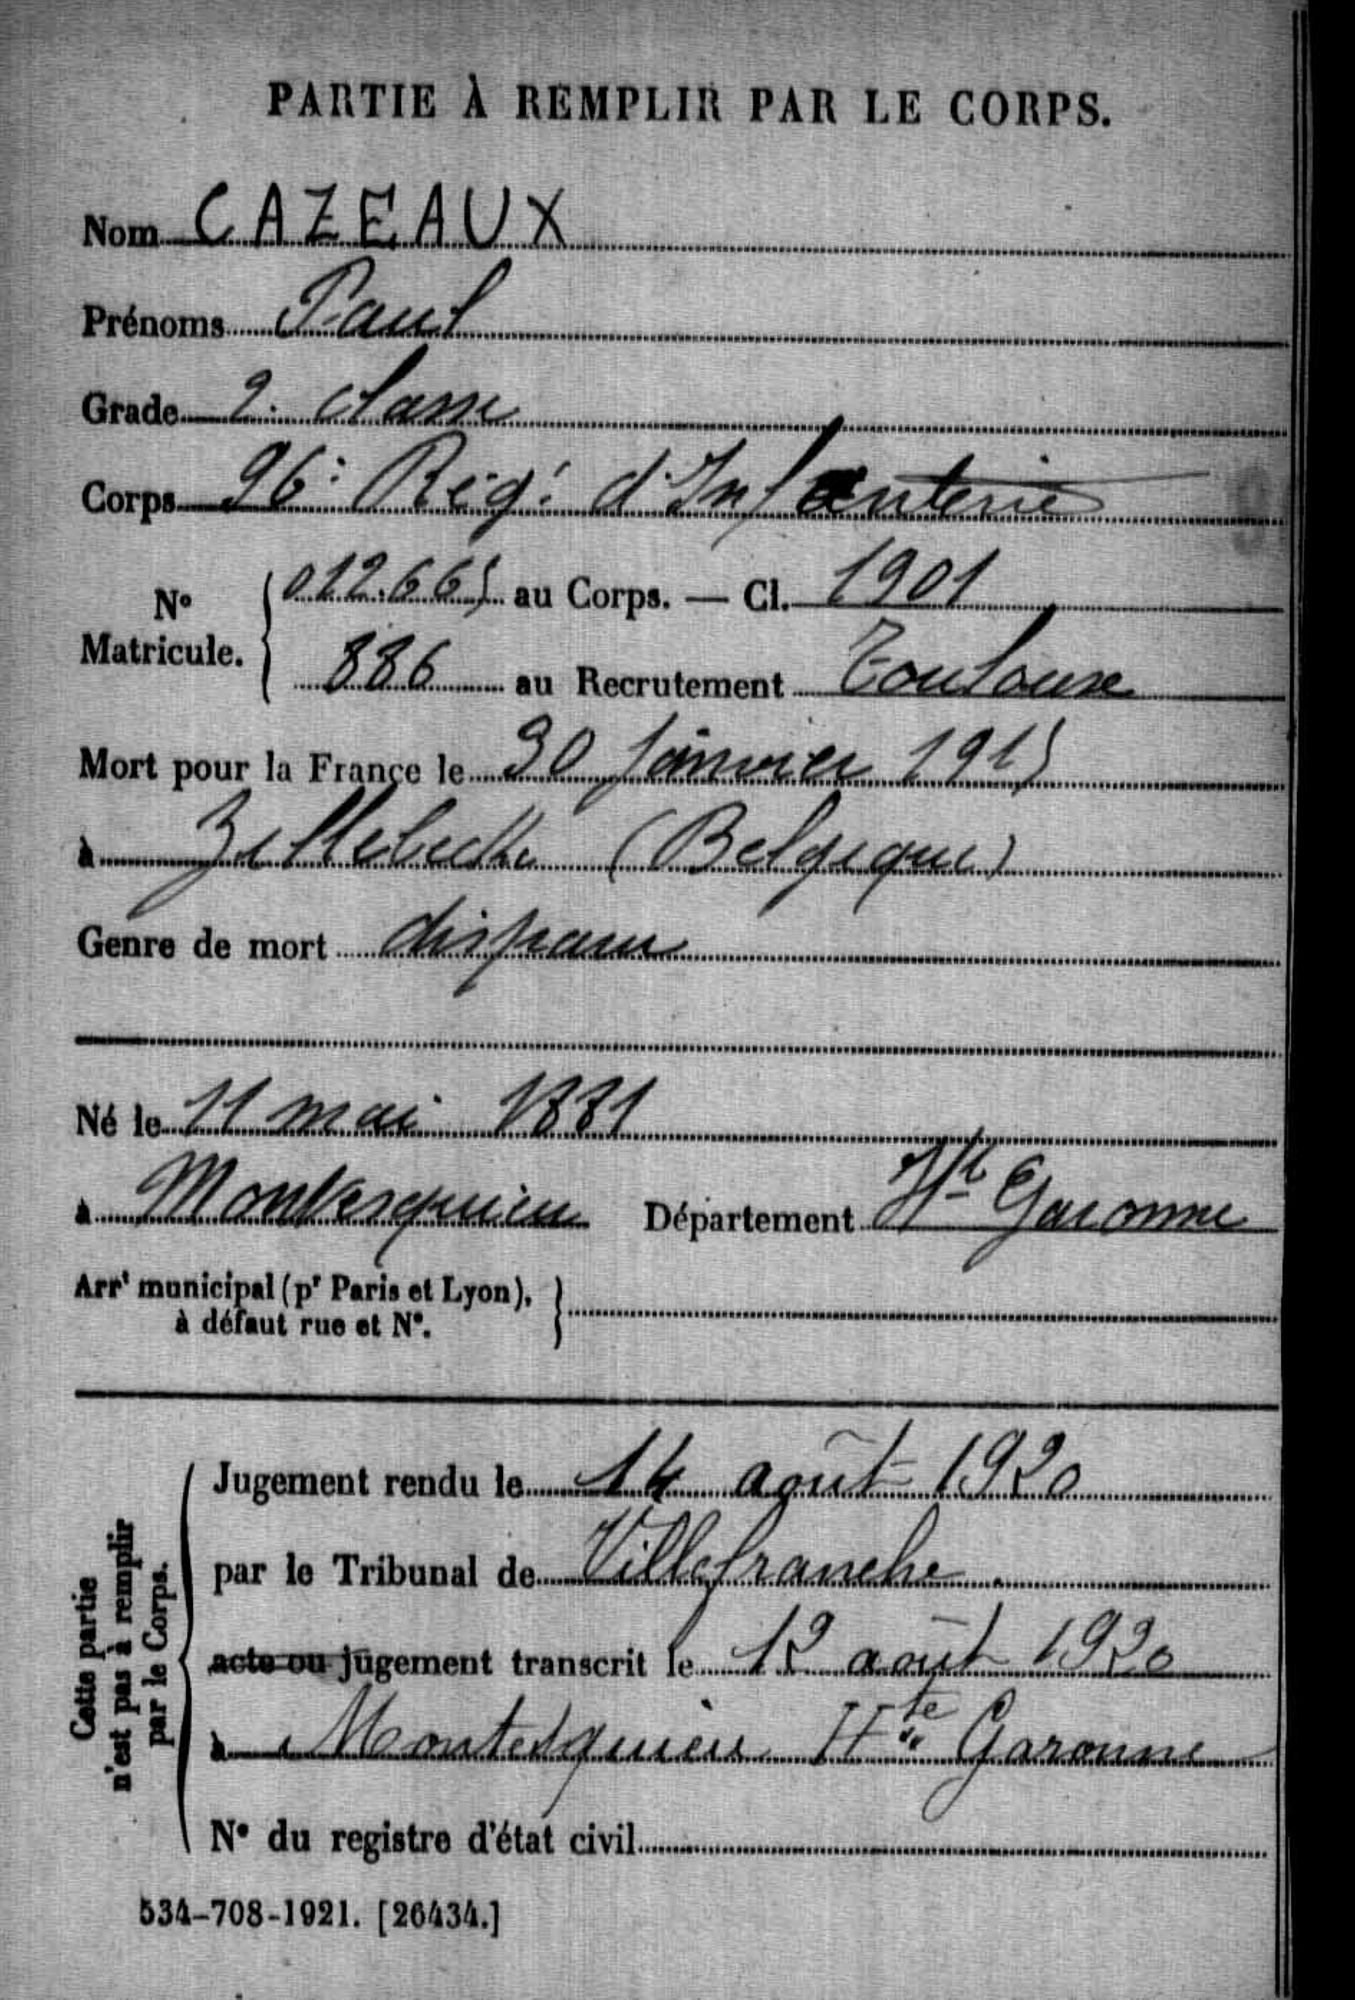 PARTIE À REMPLIR PAR LE CORPS.
Nom CAZEAUX
Prénoms Paul
Grade 2e classe
Corps 96e Régt d'Infanterie
No Matricule. { 012.665 au Corps. — Cl. 1901
886 au Recrutement Toulouse
Mort pour la France le 30 janvier 1915
à Zillebecke (Belgique)
Genre de mort disparu
Né le 11 mai 1881
à Montesquieu Département Hte Garonne
Arrt municipal (pr Paris et Lyon), }
à défaut rue et No.
Cette partie n'est pas à remplir par le Corps.
Jugement rendu le 14 août 1920
par le Tribunal de Villefranche.
acte ou jugement transcrit le 12 août 1920
à Montesquieu Hte Garonne
No du registre d'état civil
534-708-1921. [26434.]